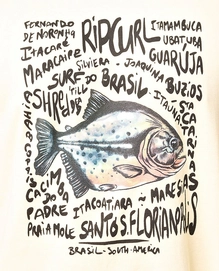 FERNANDO
DE NORONHA
ITACARÉ
MARACAIPE
RIPCURL
ITAMAMBUCA
UBATUBA
GUARUJA
SILVEIRA - JOAQUINA
BUZIOS
SURF DO BRASIL
ITAUNA
SANTA CATARINA
CACIMBA
DO
PADRE
ITACOATIARA ~ MARESIAS
PRAIA MOLE
SANTOS.FLORIANOPOLIS
BRASIL - SOUTH-AMERICA